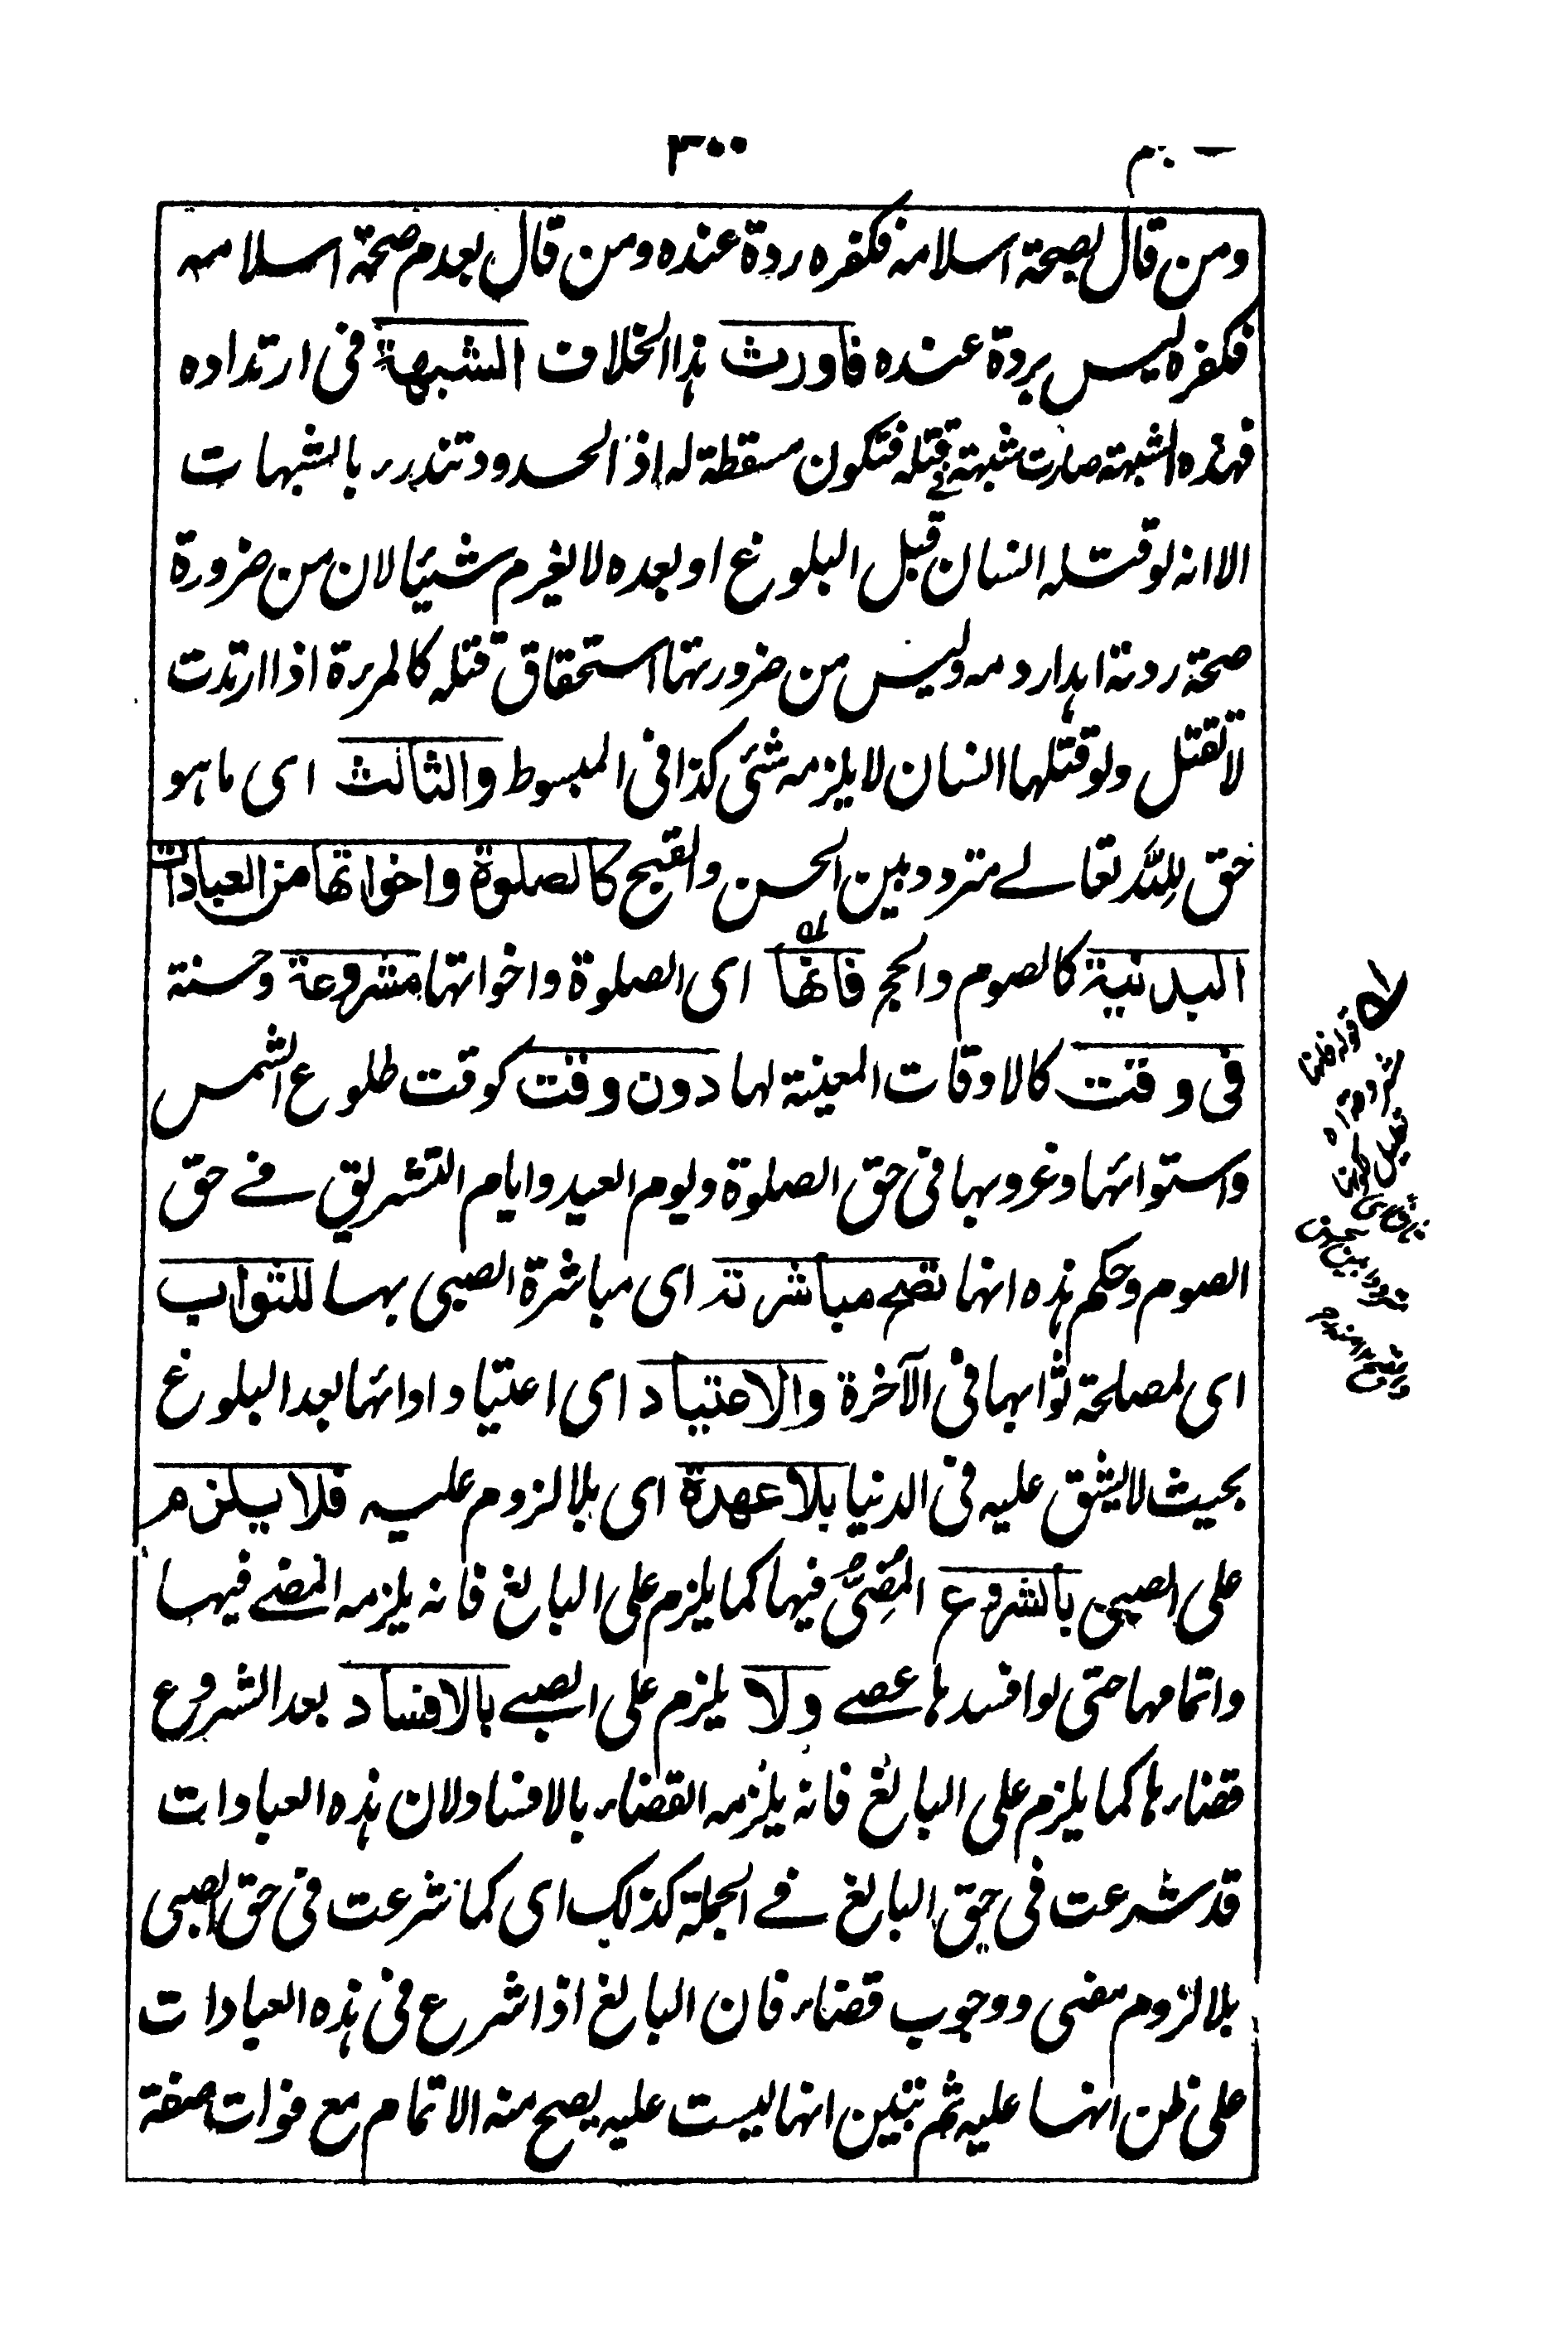 ٣٠٠
ومن قال بصحة اسلامه فكفره ردة عنده ومن قال بعدم صحة اسلامه
فكفره ليس بردة عنده فاورث هذا الخلاف الشبهة فى ارتداده
فهذه الشبهة صارت شبهة فى قتله فتكون مسقطة له اذ الحدود تندرء بالشبهات
الا انه لو قتله انسان قبل البلوغ او بعده لا يغرم شيئا لان من ضرورة
صحة ردته اهدار دمه وليس من ضرورتها استحقاق قتله كالمرءة اذا ارتدت
لا تقتل ولو قتلها انسان لا يلزمه شئ كذا فى المبسوط والثالث اى ما هو
حق لله تعالے متردد بين الحسن والقبح كالصلوة واخواتها من العبادات
البدنية كالصوم والحج فانها اى الصلوة واخواتها مشروعة وحسنة
فى وقت كالاوقات المعينة لها دون وقت كوقت طلوع الشمس
واستوائها وغروبها فى حق الصلوة ويوم العيد وايام التشريق فے حق
الصوم وحكم هذه انها تصح مباشرته اى مباشرة الصبى بها للثواب
اى لمصلحة ثوابها فى الآخرة والاعتياد اى اعتياد ادائها بعد البلوغ
بحيث لا يشق عليه فى الدنيا بلا عهدة اى بلا لزوم عليه فلا يلزم
على الصبى بالشروع المُضِىُّ فيها كما يلزم على البالغ فانه يلزمه المضے فيها
واتمامها حتى لو افسدها عصے ولا يلزم على الصبے بالافساد بعد الشروع
قضاءها كما يلزم على البالغ فانه يلزمه القضاء بالافساد لان هذه العبادات
قد شرعت فى حق البالغ فے الجملة كذلك اى كما شرعت فى حق الصبى
بلا لزوم مضى ووجوب قضاء فان البالغ اذا شرع فى هذه العبادات
على ظن انها عليه ثم تبين انها ليست عليه يصح منه الاتمام مع فوات صفة